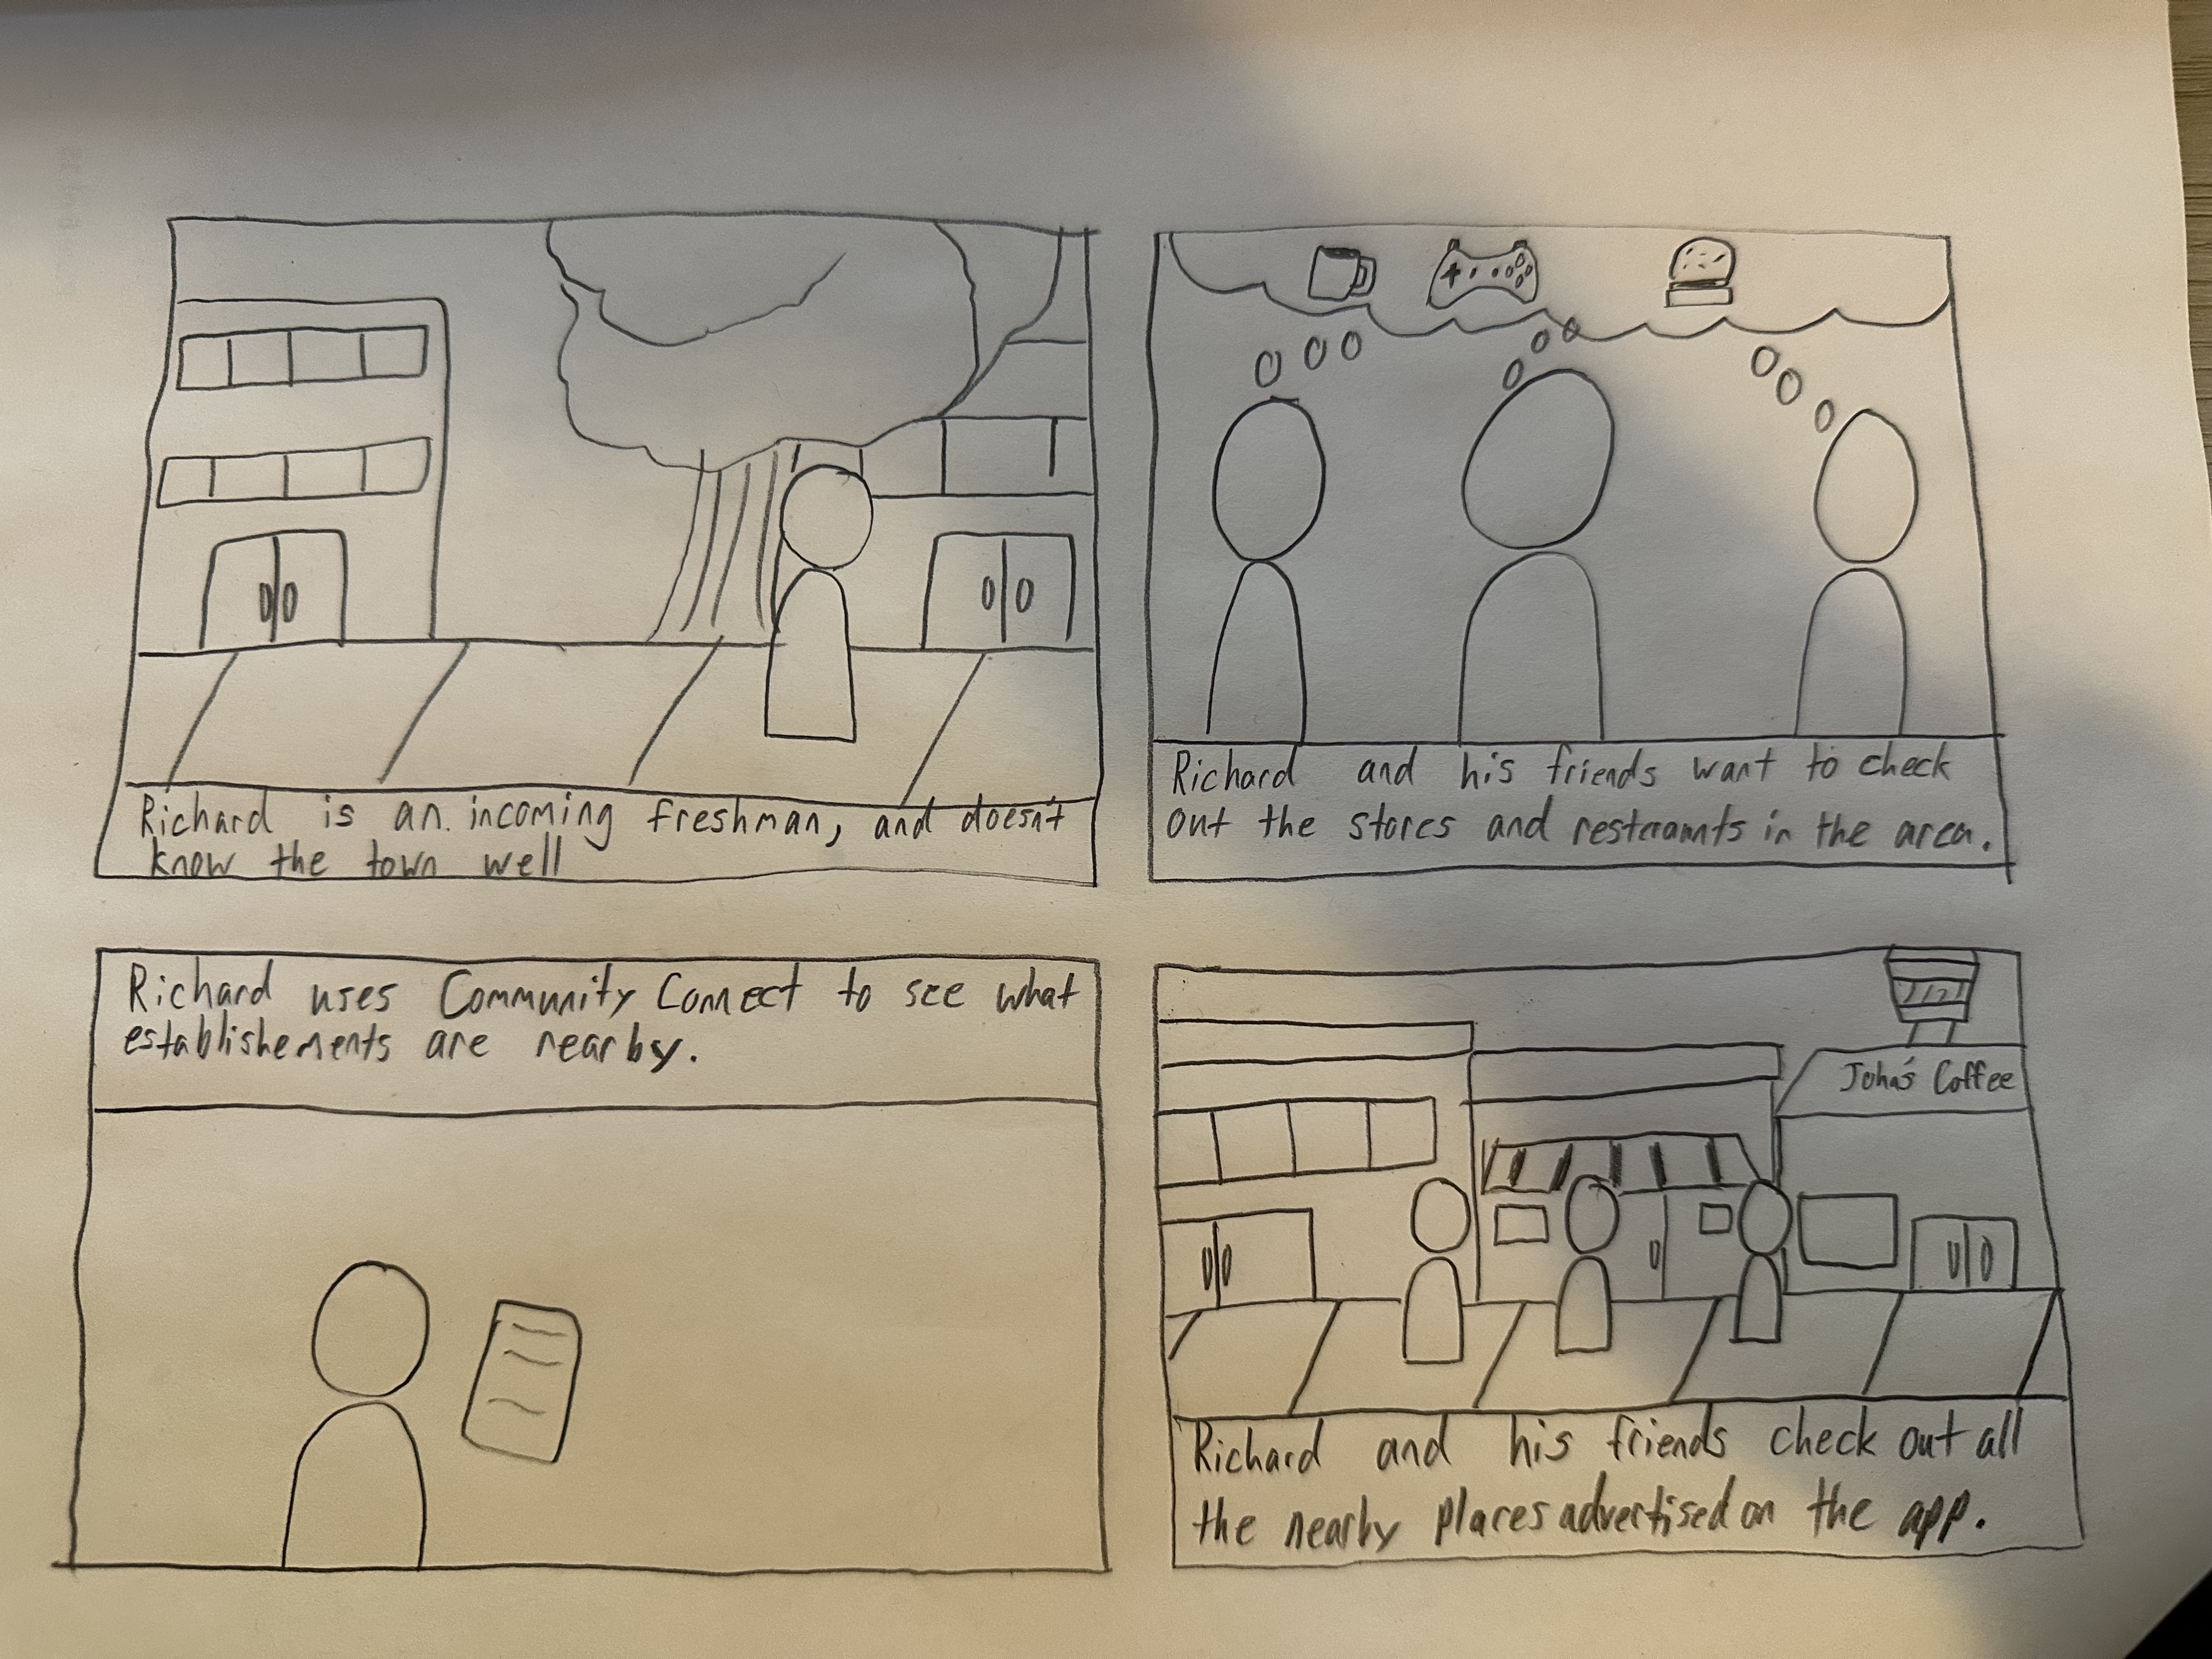 Richard is an incoming freshman, and doesn't
know the town well
Richard and his friends want to check
out the stores and resteraunts in the area.
Richard uses Community Connect to see what
establishements are nearby.
John's Coffee
Richard and his friends check out all
the nearby places advertised on the app.